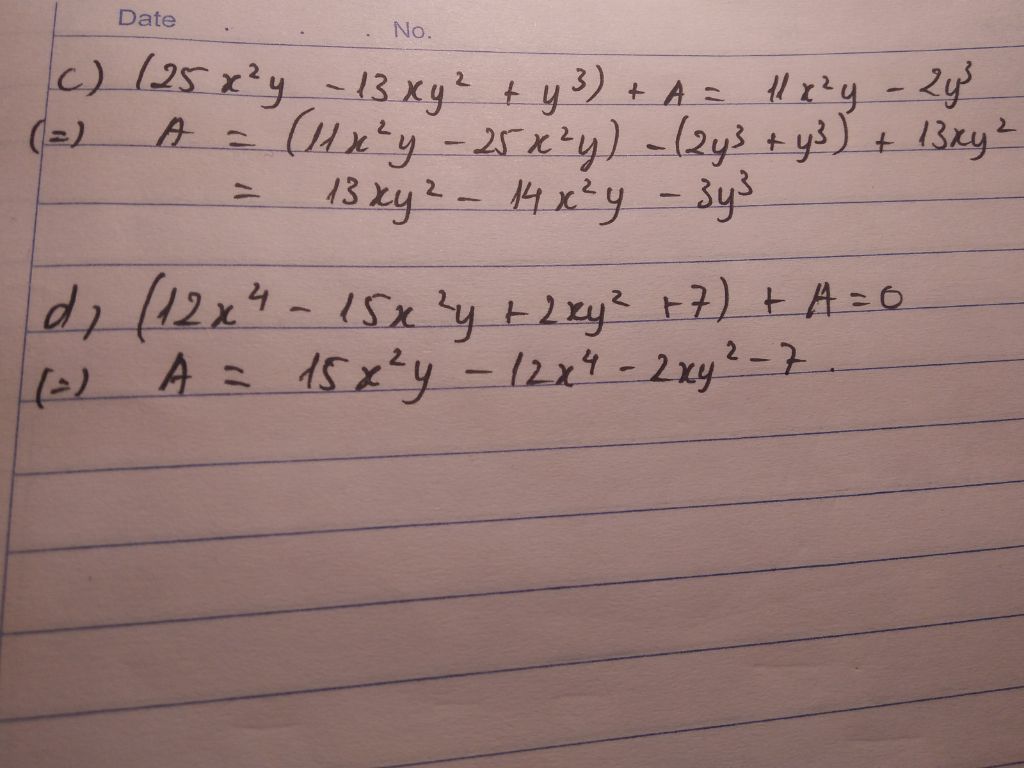 Date . . . No.
c) (25x²y - 13xy² + y³) + A = 11x²y - 2y³
(=) A = (11x²y - 25x²y) - (2y³ + y³) + 13xy²
= 13xy² - 14x²y - 3y³
d, (12x⁴ - 15x²y + 2xy² + 7) + A = 0
(=) A = 15x²y - 12x⁴ - 2xy² - 7.